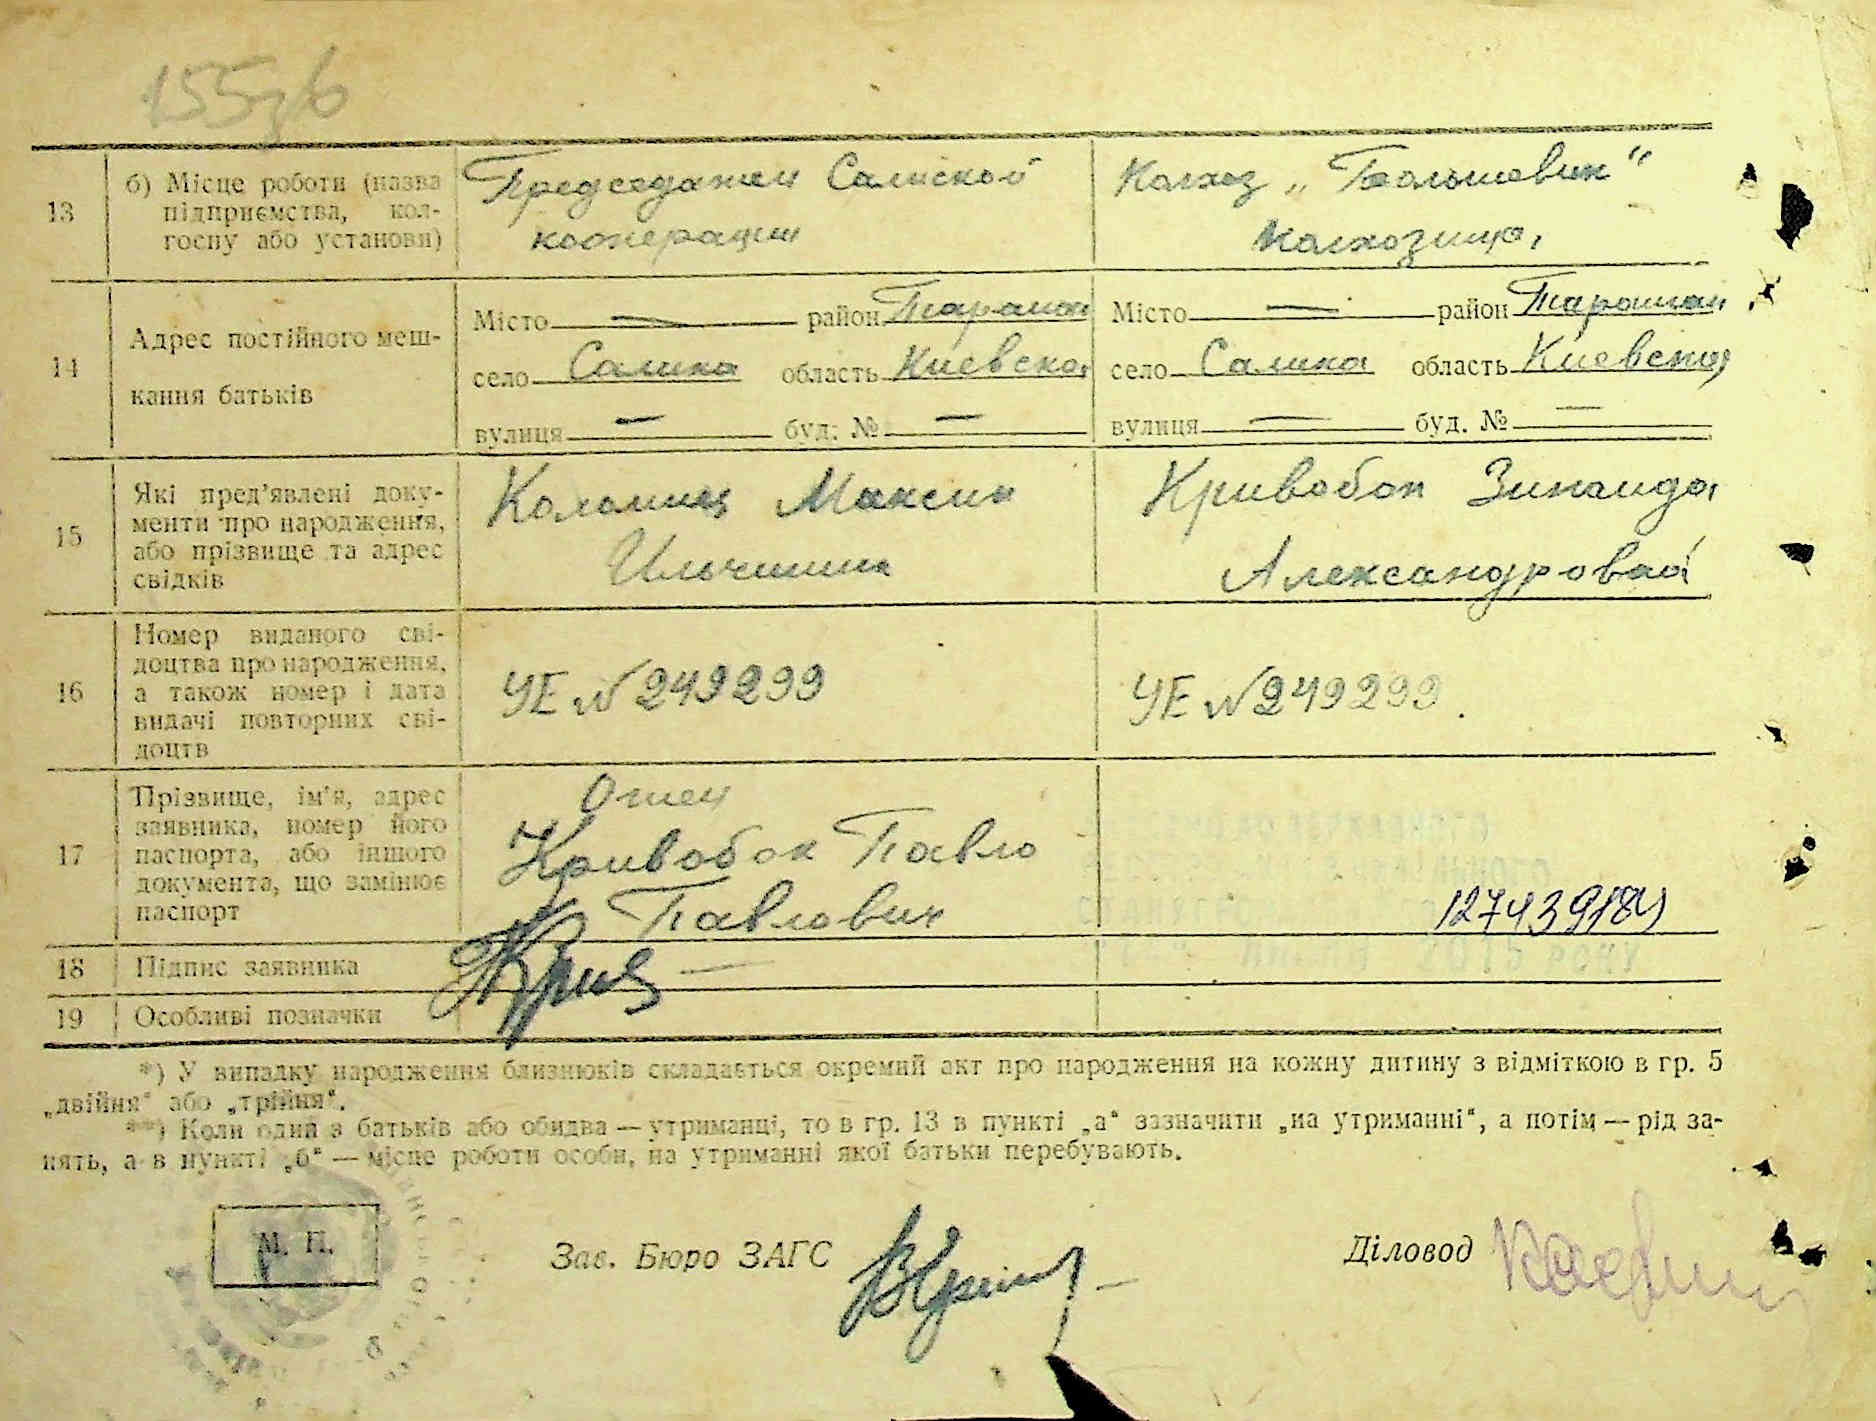 155зб
13 б) Місце роботи (назва підприємства, колгоспу або установи)
Председатель Салиской
кооперации
Колхоз „Большевик“
колхозница,
14 Адрес постійного мешкання батьків
Місто — район Таращан
село Салиха область Киевская
вулиця — буд. № —
Місто — район Таращан
село Салиха область Киевская
вулиця — буд. № —
15 Які пред’явлені документи про народження, або прізвище та адрес свідків
Коломиец Максим
Ильчишин
Кривобок Зинаида
Александровна
16 Номер виданого свідоцтва про народження, а також номер і дата видачі повторних свідоцтв
УЕ № 249299
УЕ № 249299.
17 Прізвище, ім’я, адрес заявника, номер його паспорта, або іншого документа, що замінює паспорт
Отец
Кривобок Павло
Павлович
127439184
18 Підпис заявника
Крив
19 Особливі позначки
*) У випадку народження близнюків складається окремий акт про народження на кожну дитину з відміткою в гр. 5
„двійня“ або „трійня“.
**) Коли один з батьків або обидва — утриманці, то в гр. 13 в пункті „а“ зазначити „на утриманні“, а потім — рід за-
нять, а в пункті „б“ — місце роботи особи, на утриманні якої батьки перебувають.
М. П.
Зав. Бюро ЗАГС
Діловод